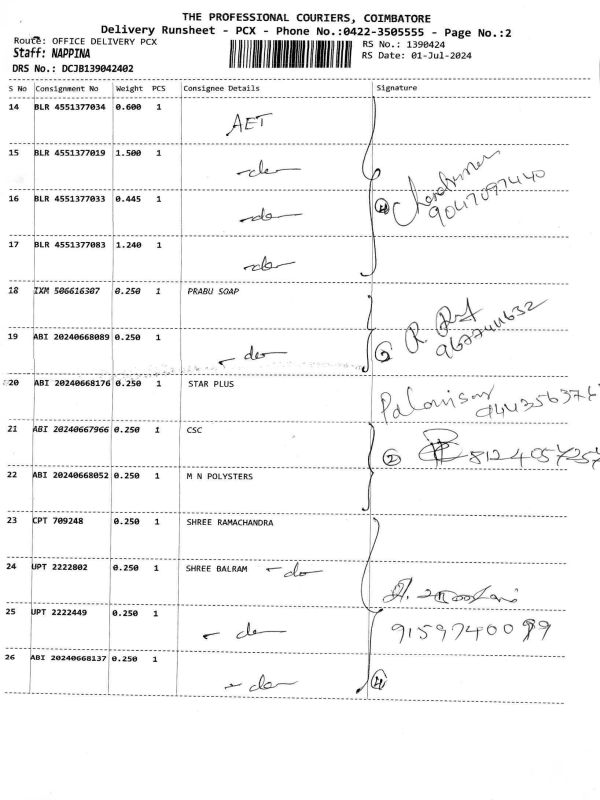 THE PROFESSIONAL COURIERS, COIMBATORE
Delivery Runsheet - PCX - Phone No.:0422-3505555 - Page No.:2
Route: OFFICE DELIVERY PCX
RS No.: 1390424
Staff: NAPPINA
RS Date: 01-Jul-2024
DRS No.: DCJB139042402
S No Consignment No Weight PCS Consignee Details Signature
14 BLR 4551377034 0.600 1 AET
15 BLR 4551377019 1.500 1 -do-
16 BLR 4551377033 0.445 1 -do-
④ 9047097440
17 BLR 4551377083 1.240 1 -do-
18 IXM 506616307 0.250 1 PRABU SOAP
19 ABI 20240668089 0.250 1 -do-
② R
20 ABI 20240668176 0.250 1 STAR PLUS
21 ABI 20240667966 0.250 1 CSC
② 8124057257
22 ABI 20240668052 0.250 1 M N POLYSTERS
23 CPT 709248 0.250 1 SHREE RAMACHANDRA
24 UPT 2222802 0.250 1 SHREE BALRAM -do-
25 UPT 2222449 0.250 1 -do-
26 ABI 20240668137 0.250 1 -do-
④